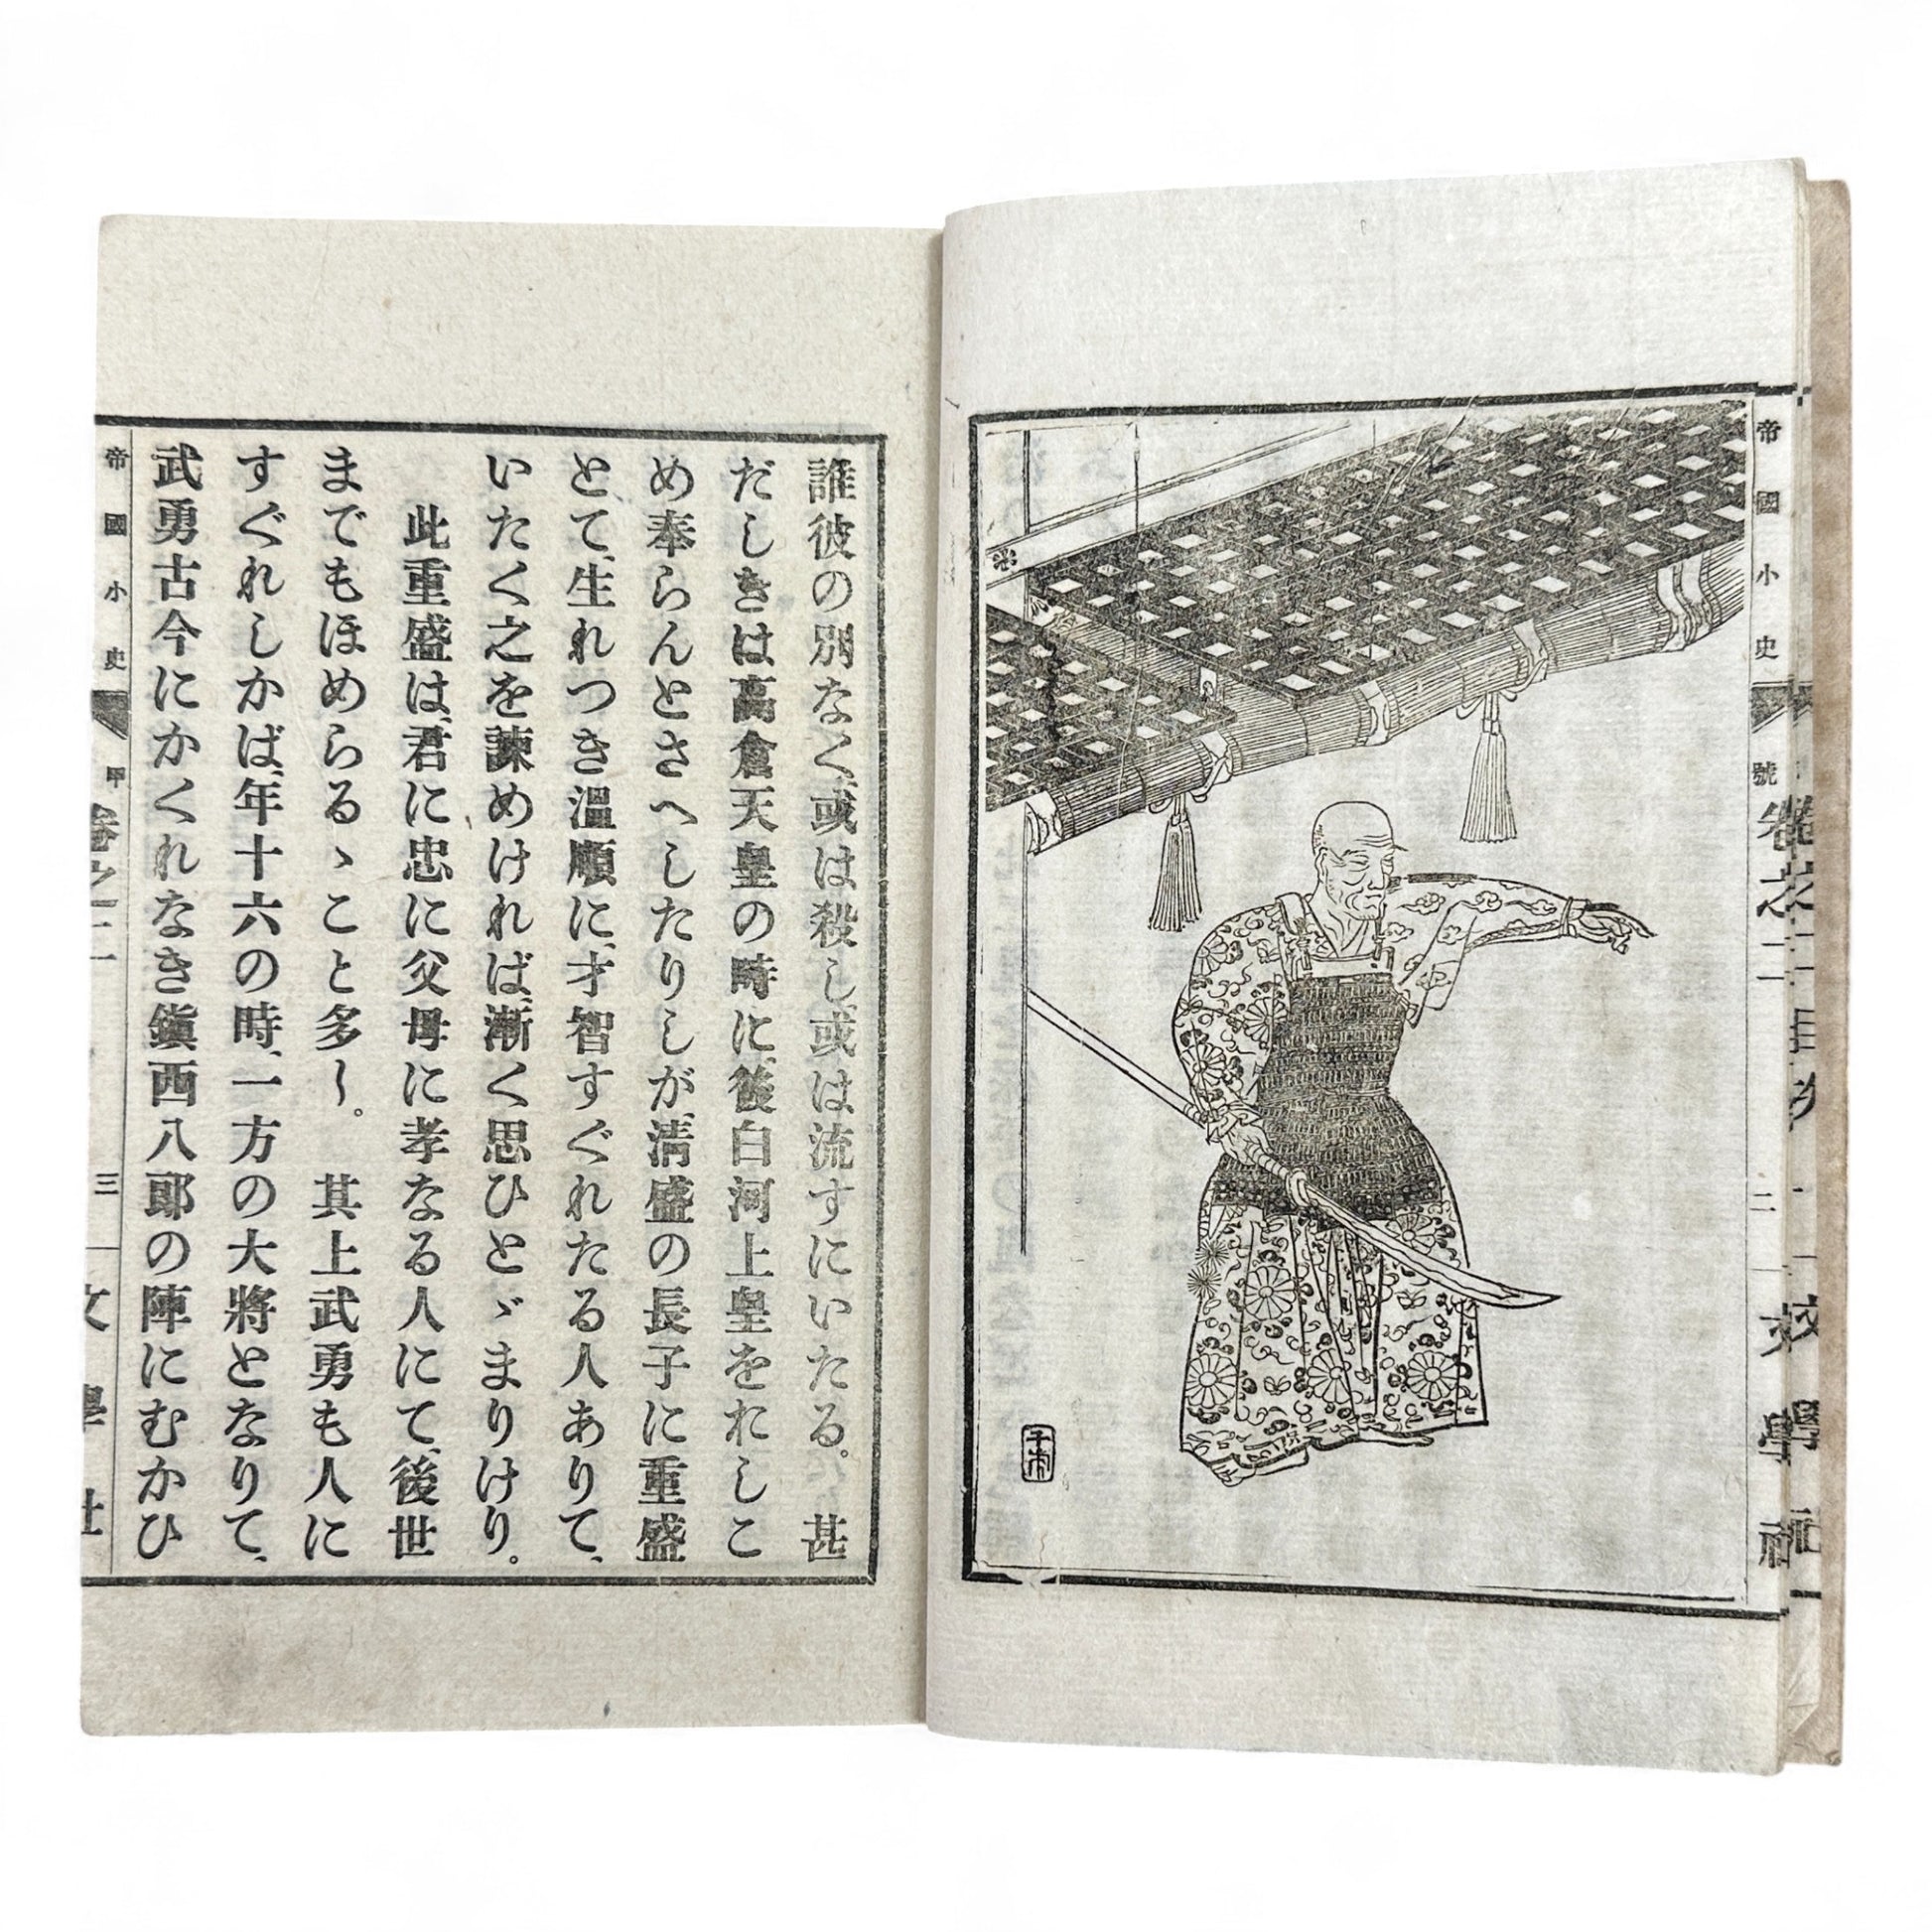 帝國小史
號
卷之二
二
文學社
誰彼の別なく、或は殺し、或は流すにいたる。甚
だしきは高倉天皇の時に、後白河上皇をおしこ
め奉らんとさへしたりしが、淸盛の長子に重盛
とて、生れつき溫順に、才智すぐれたる人ありて、
いたく之を諫めければ、漸く思ひとゞまりけり。
此重盛は、君に忠に父母に孝なる人にて、後世
までもほめらるゝこと多し。其上武勇も人に
すぐれしかば、年十六の時、一方の大將となりて、
武勇古今にかくれなき鎭西八郞の陣にむかひ
帝國小史
甲
卷之二
三
文學社